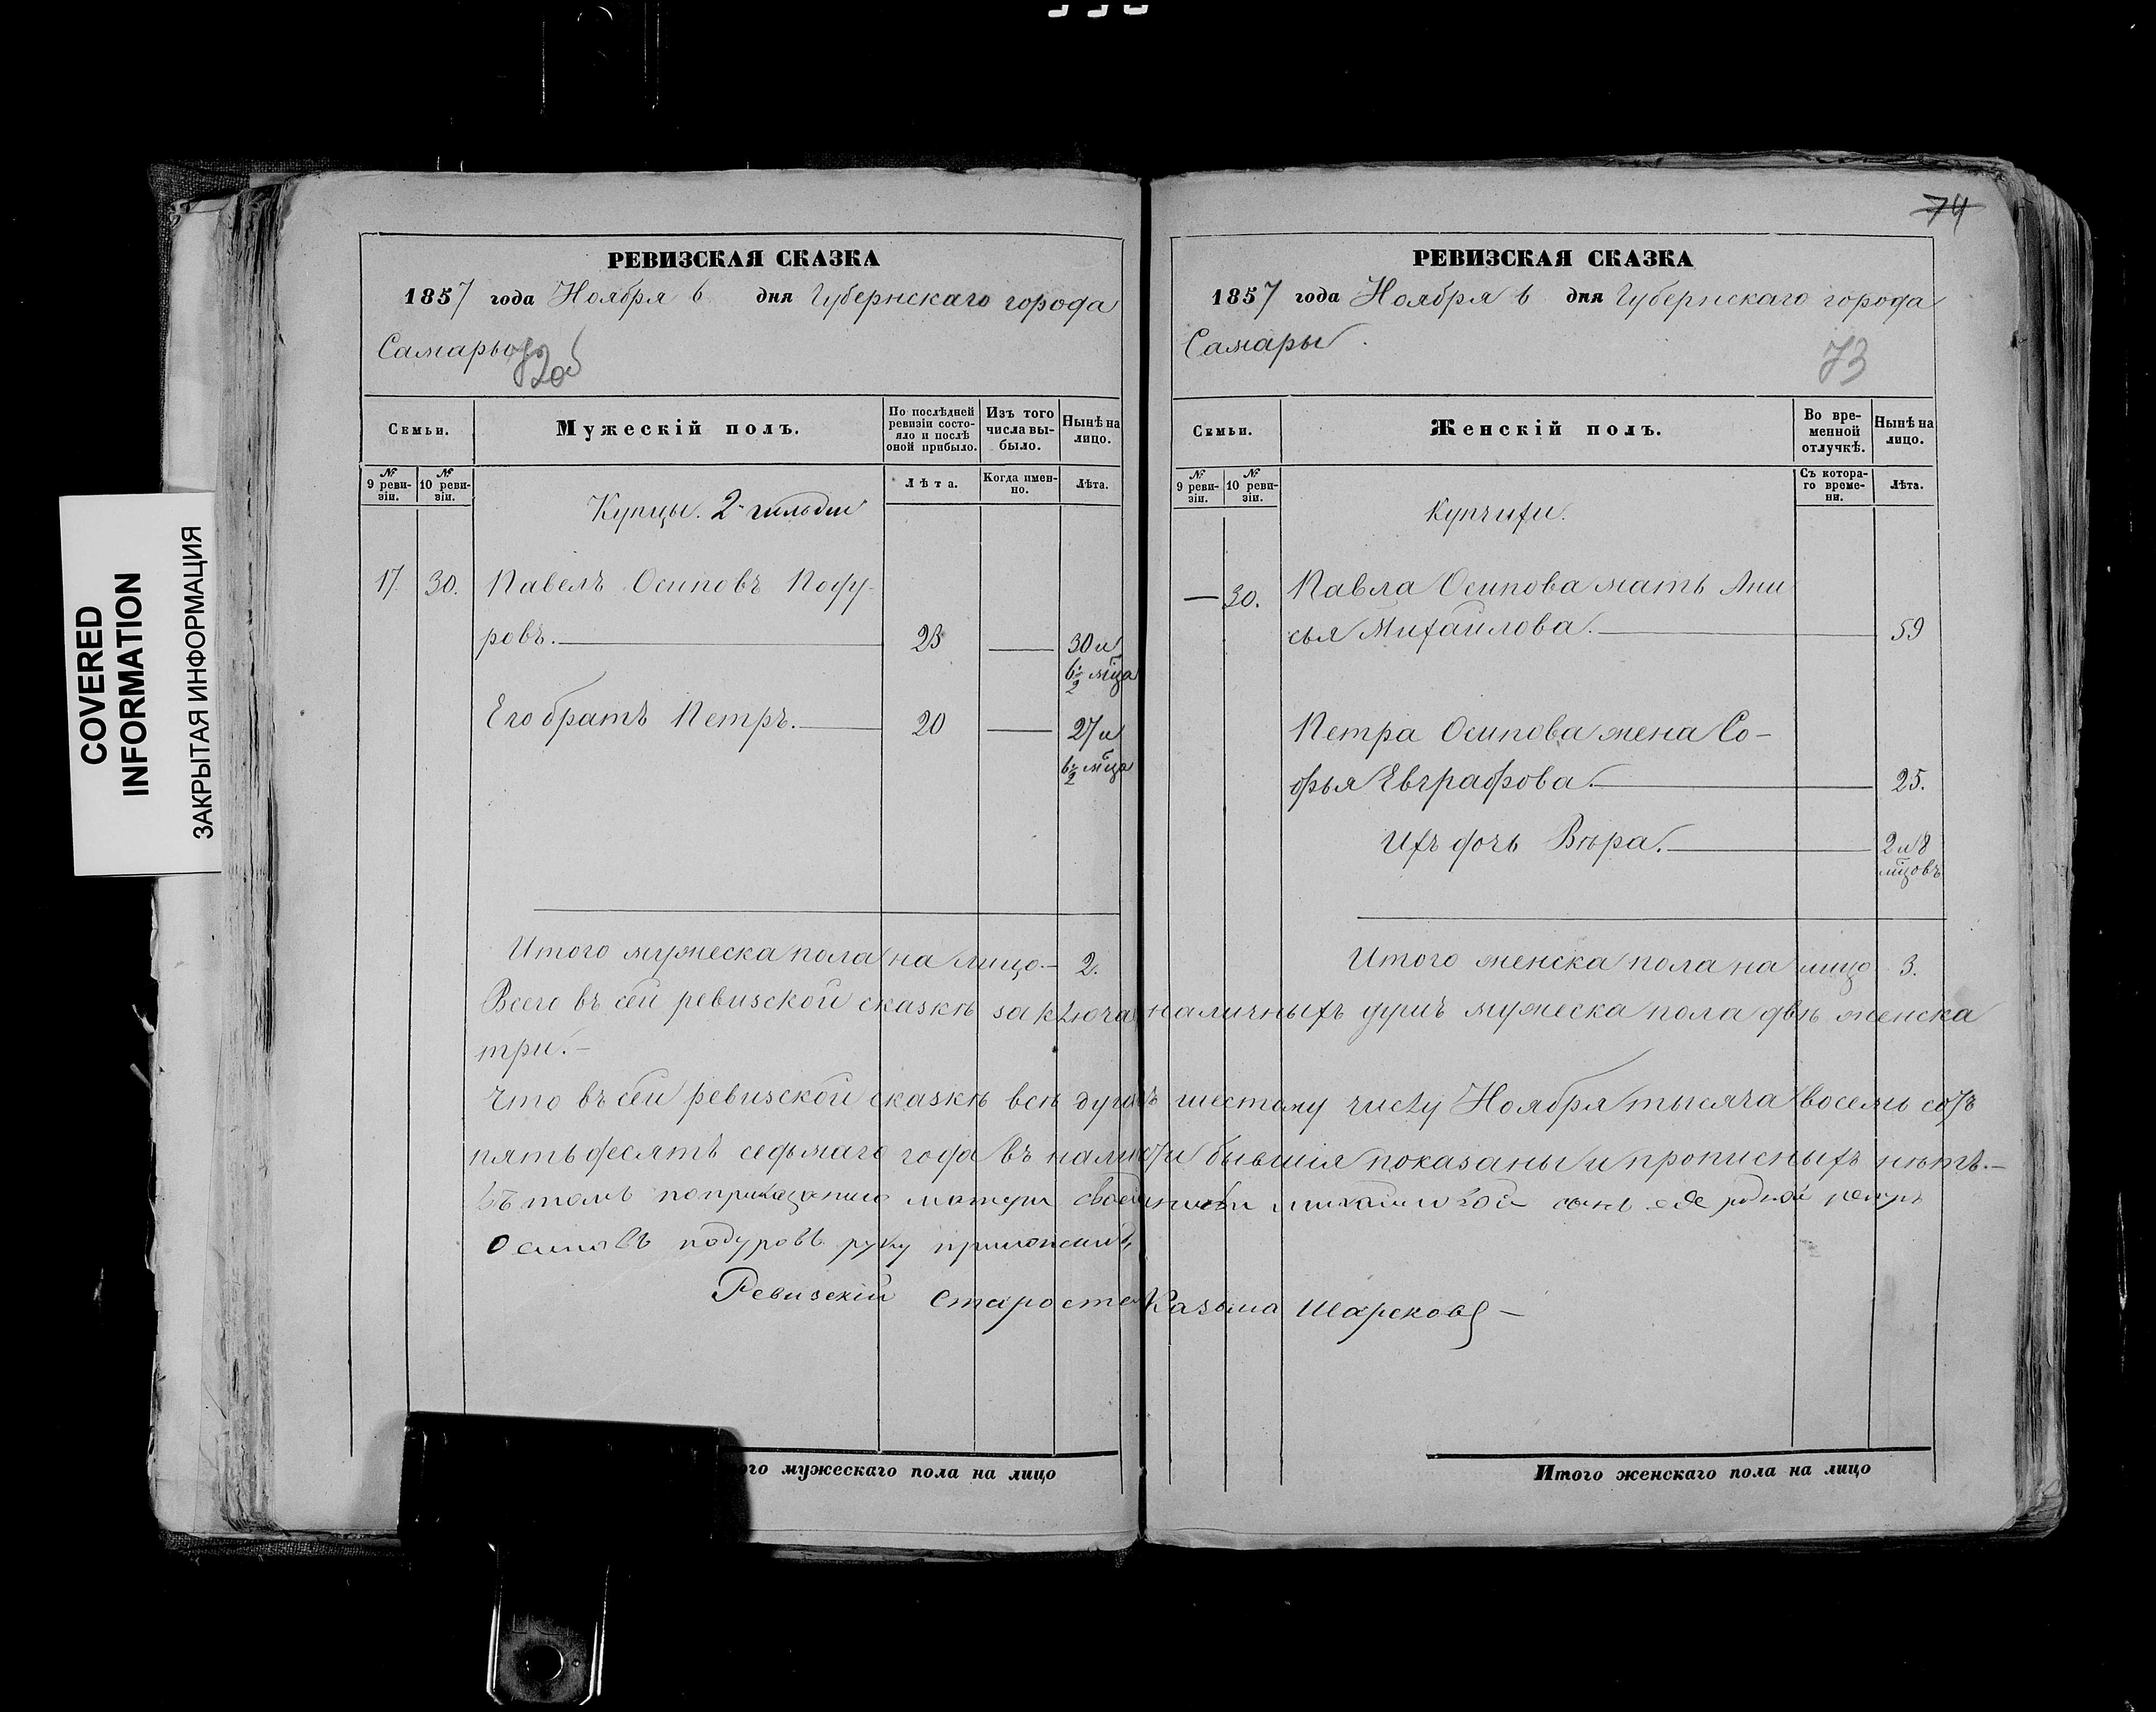 COVERED
INFORMATION
ЗАКРЫТАЯ ИНФОРМАЦИЯ
РЕВИЗСКАЯ СКАЗКА
1857 года Ноября 6 дня Губернскаго города
Самары
Семьи.
Мужескій полъ.
По послѣдней ревизіи состояло и послѣ оной прибыло.
Изъ того числа выбыло.
Нынѣ на лицо.
№ 9 ревизіи.
№ 10 ревизіи.
Лѣта.
Когда именно.
Лѣта.
Купцы. 2 гильдіи
17. 30. Павелъ Осиповъ Поду-
ровъ. 23 — 30 и
6 1/2 мѣца
Его братъ Петръ. 20 — 27 и
6 1/2 мѣца
Итого мужеска пола на лицо — 2.
РЕВИЗСКАЯ СКАЗКА
74
1857 года Ноября 6 дня Губернскаго города
Самары.
73
Семьи.
Женскій полъ.
Во временной отлучкѣ.
Нынѣ на лицо.
№ 9 ревизіи.
№ 10 ревизіи.
Съ котораго времени.
Лѣта.
Купчихи.
— 30. Павла Осипова мать Ани
сья Михайлова. 59
Петра Осипова жена Со-
фья Евграфова. 25.
Ихъ дочь Вѣра. 2 и 8
мѣцовъ
Итого женска пола на лицо 3.
Всего въ сей ревизской сказкѣ заключа наличныхъ душъ мужеска пола двѣ женска
три. —
Что въ сей ревизской сказкѣ всѣ души къ шестому числу Ноября тысяча восемь сотъ
пятьдесятъ седьмаго года въ наличности бывшія показаны и прописныхъ нѣтъ. —
въ томъ по приказанию матери своей Михайловой сынъ ее родной петръ
Осиповъ подуровъ руку приложилъ
Ревизскій Староста Казьма Шарсковъ —
ого мужескаго пола на лицо
Итого женскаго пола на лицо